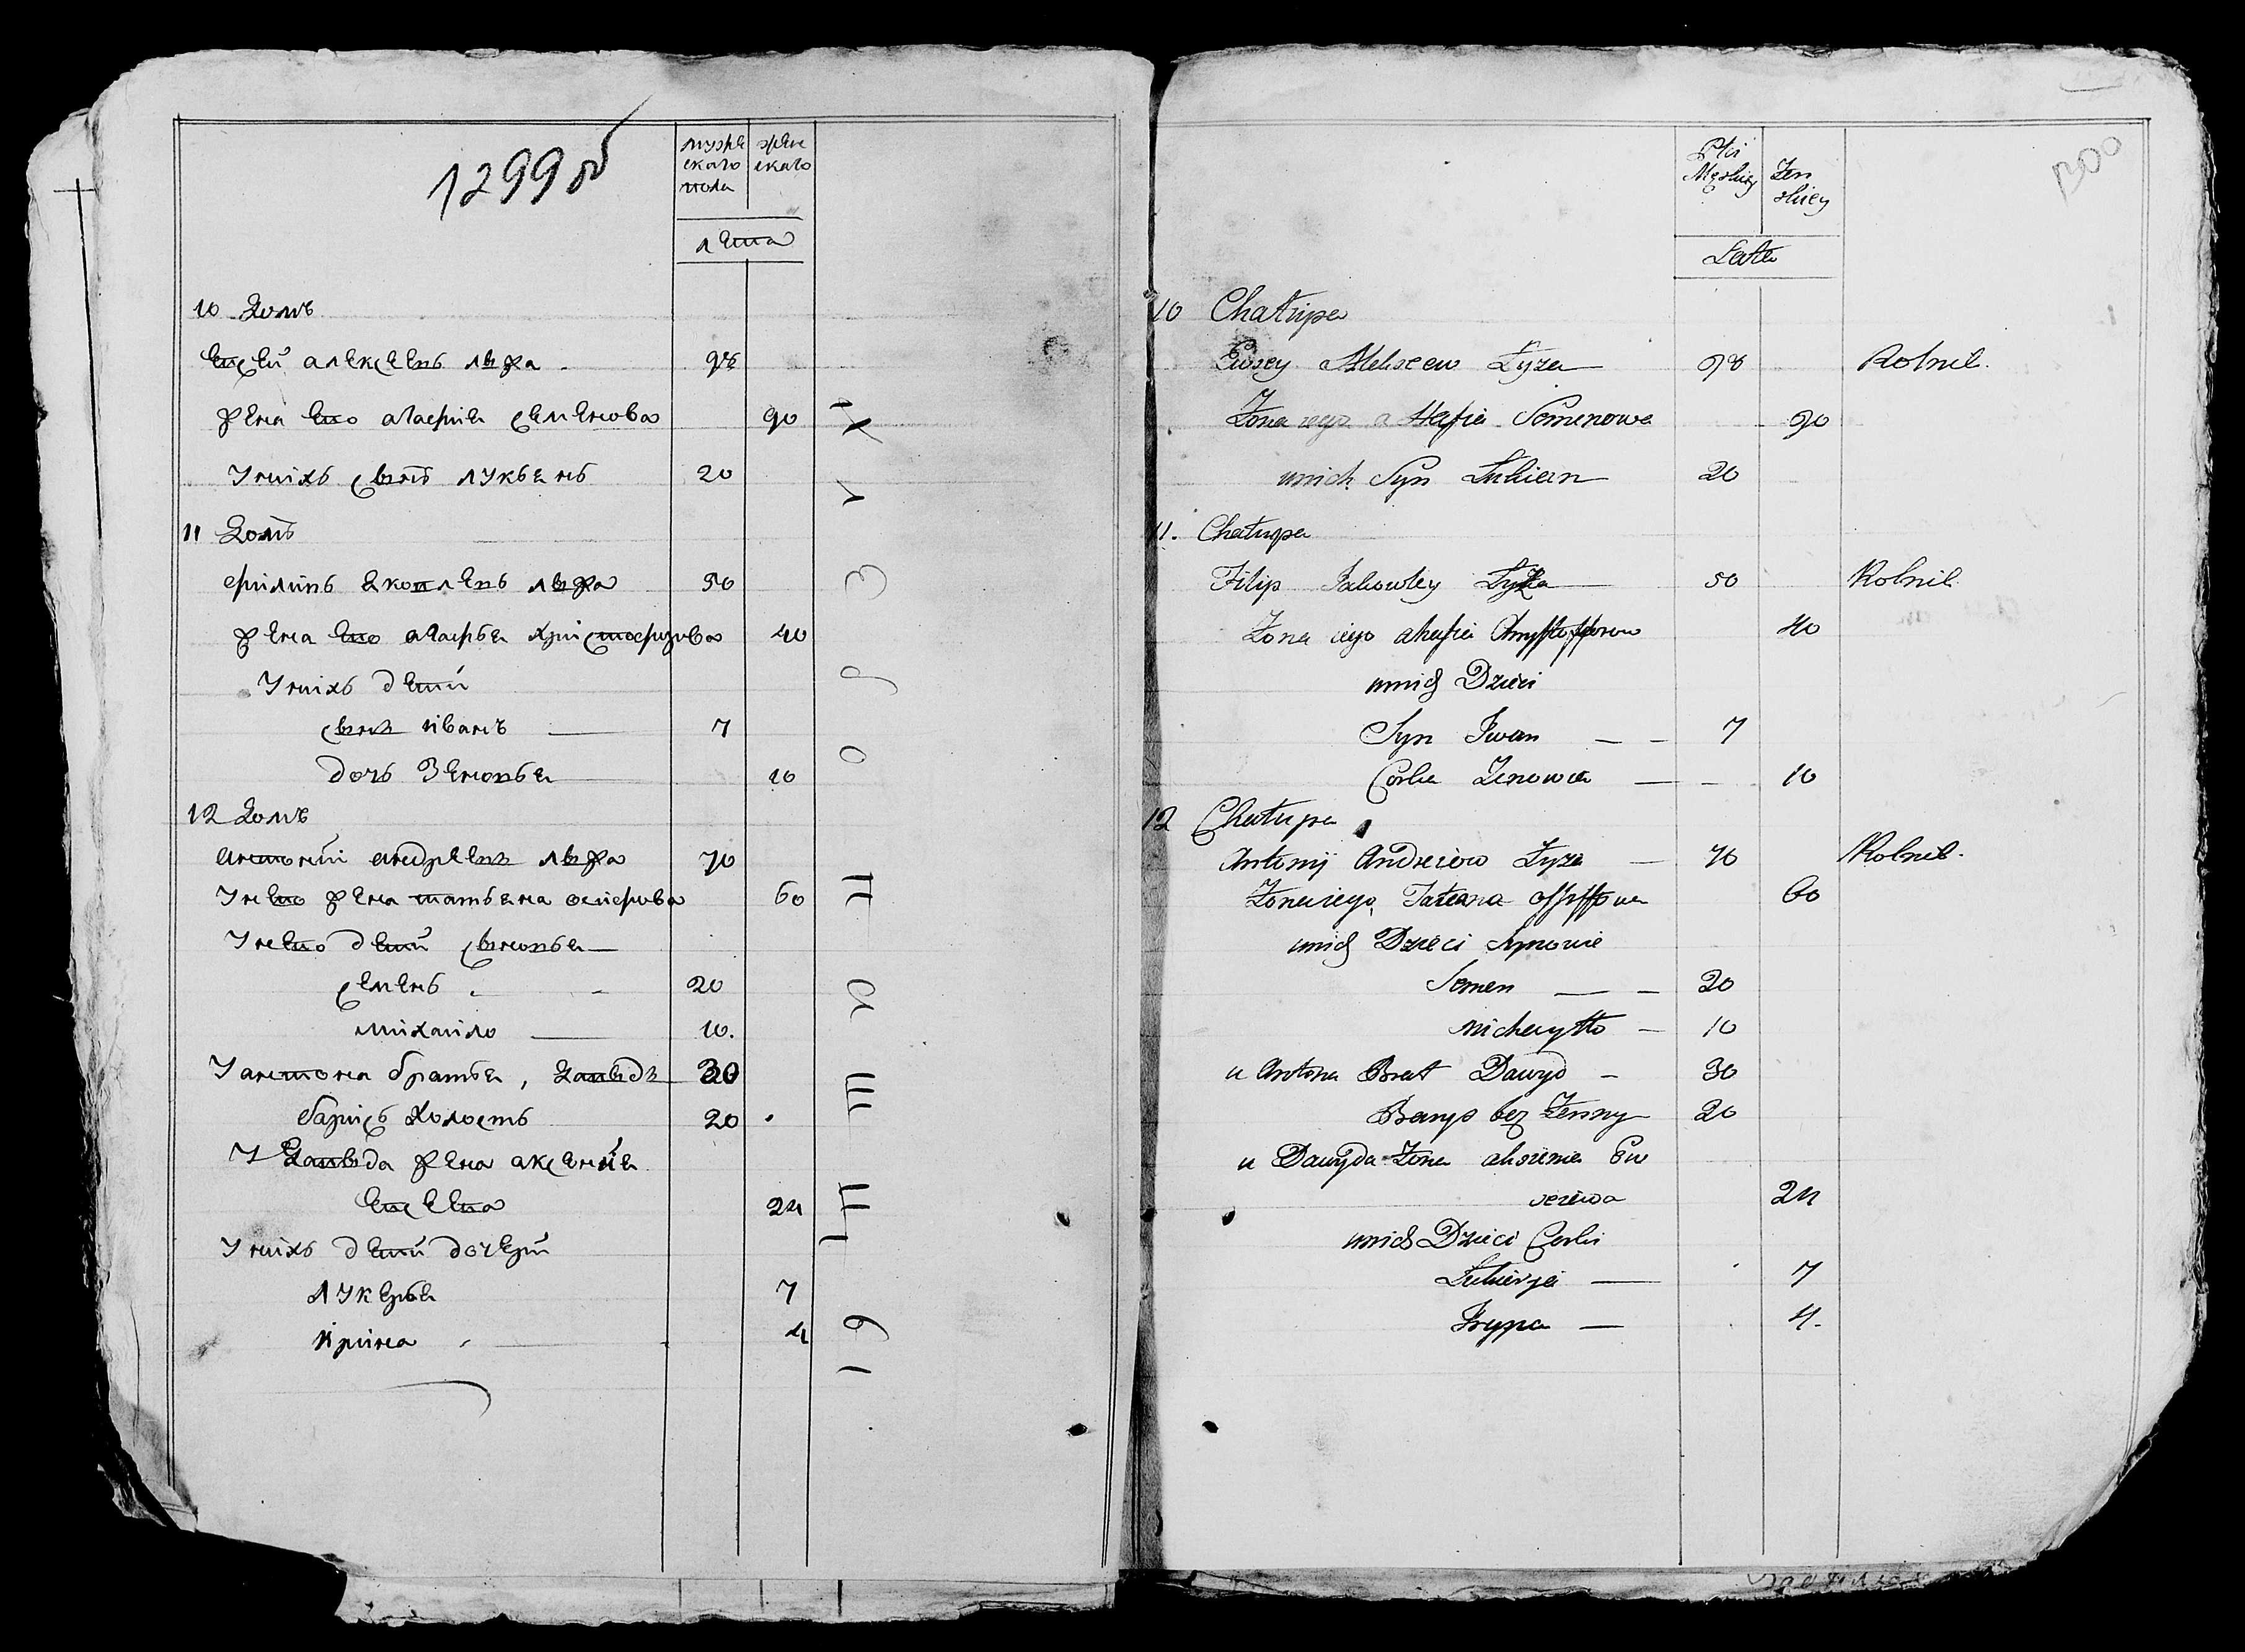 1299 об
мужескаго пола
женскаго
лета
10 Домъ
Евсей алексеевъ лыжа 98
жена ево агафия семенова 90
у нихъ сынъ лукьянъ 20
11 Домъ
филипъ яковлевъ лыжа 50
жена ево агафья христофорова 40
у нихъ дети
сынъ иванъ 7
дочь зеновья 10
12 Домъ
антоний андреевъ лыжа 70
у нево жена татьяна осифова 60
у нево дети сыновья
семенъ 20
михаило 10.
у антона братья, Давыдъ 30
барисъ холостъ 20
у Давыда жена аксения
евсеева 24
у нихъ дети дочери
лукерья 7
ирина 4
Хл
л
з
о
п
а
ш
ц
Płci Męskiey
Zenskiey
Lata
1300
10 Chałupa
Ewsey Alekseew Łyza 98 Rolnik.
Zona iego aHafia Semenowa 90
unich Syn Lukian 20
11. Chałupa
Filip Jakowley Łyza 50 Rolnik
Zona iego ahafia Chrysstofforow 40
unich Dzieci
Syn Iwan 7
Corka Zenowia 10
12 Chałupa
Antonij Andreiew Łyza 70 Rolnik.
Zona iego Tateana Ossiffowa 60
unich Dzieci Synowie
Semen 20
Michayło 10
u Antona Brat Dawyd 30
Barys bez Zenny 20
u Dawyda Zona aksienia Ew
seiewa 24
unich Dzieci Corki
Lukierja 7
Iryna 4.